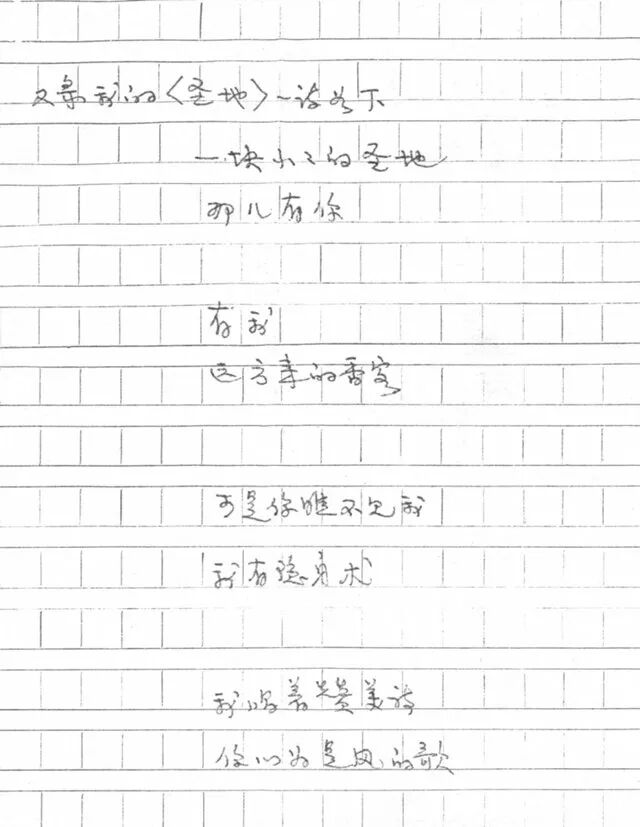 又录我的〈圣地〉一诗如下
一块小小的圣地
那儿有你
有我
远方来的香客
可是你瞧不见我
我有隐身术
我唱着赞美诗
你以为是风的歌